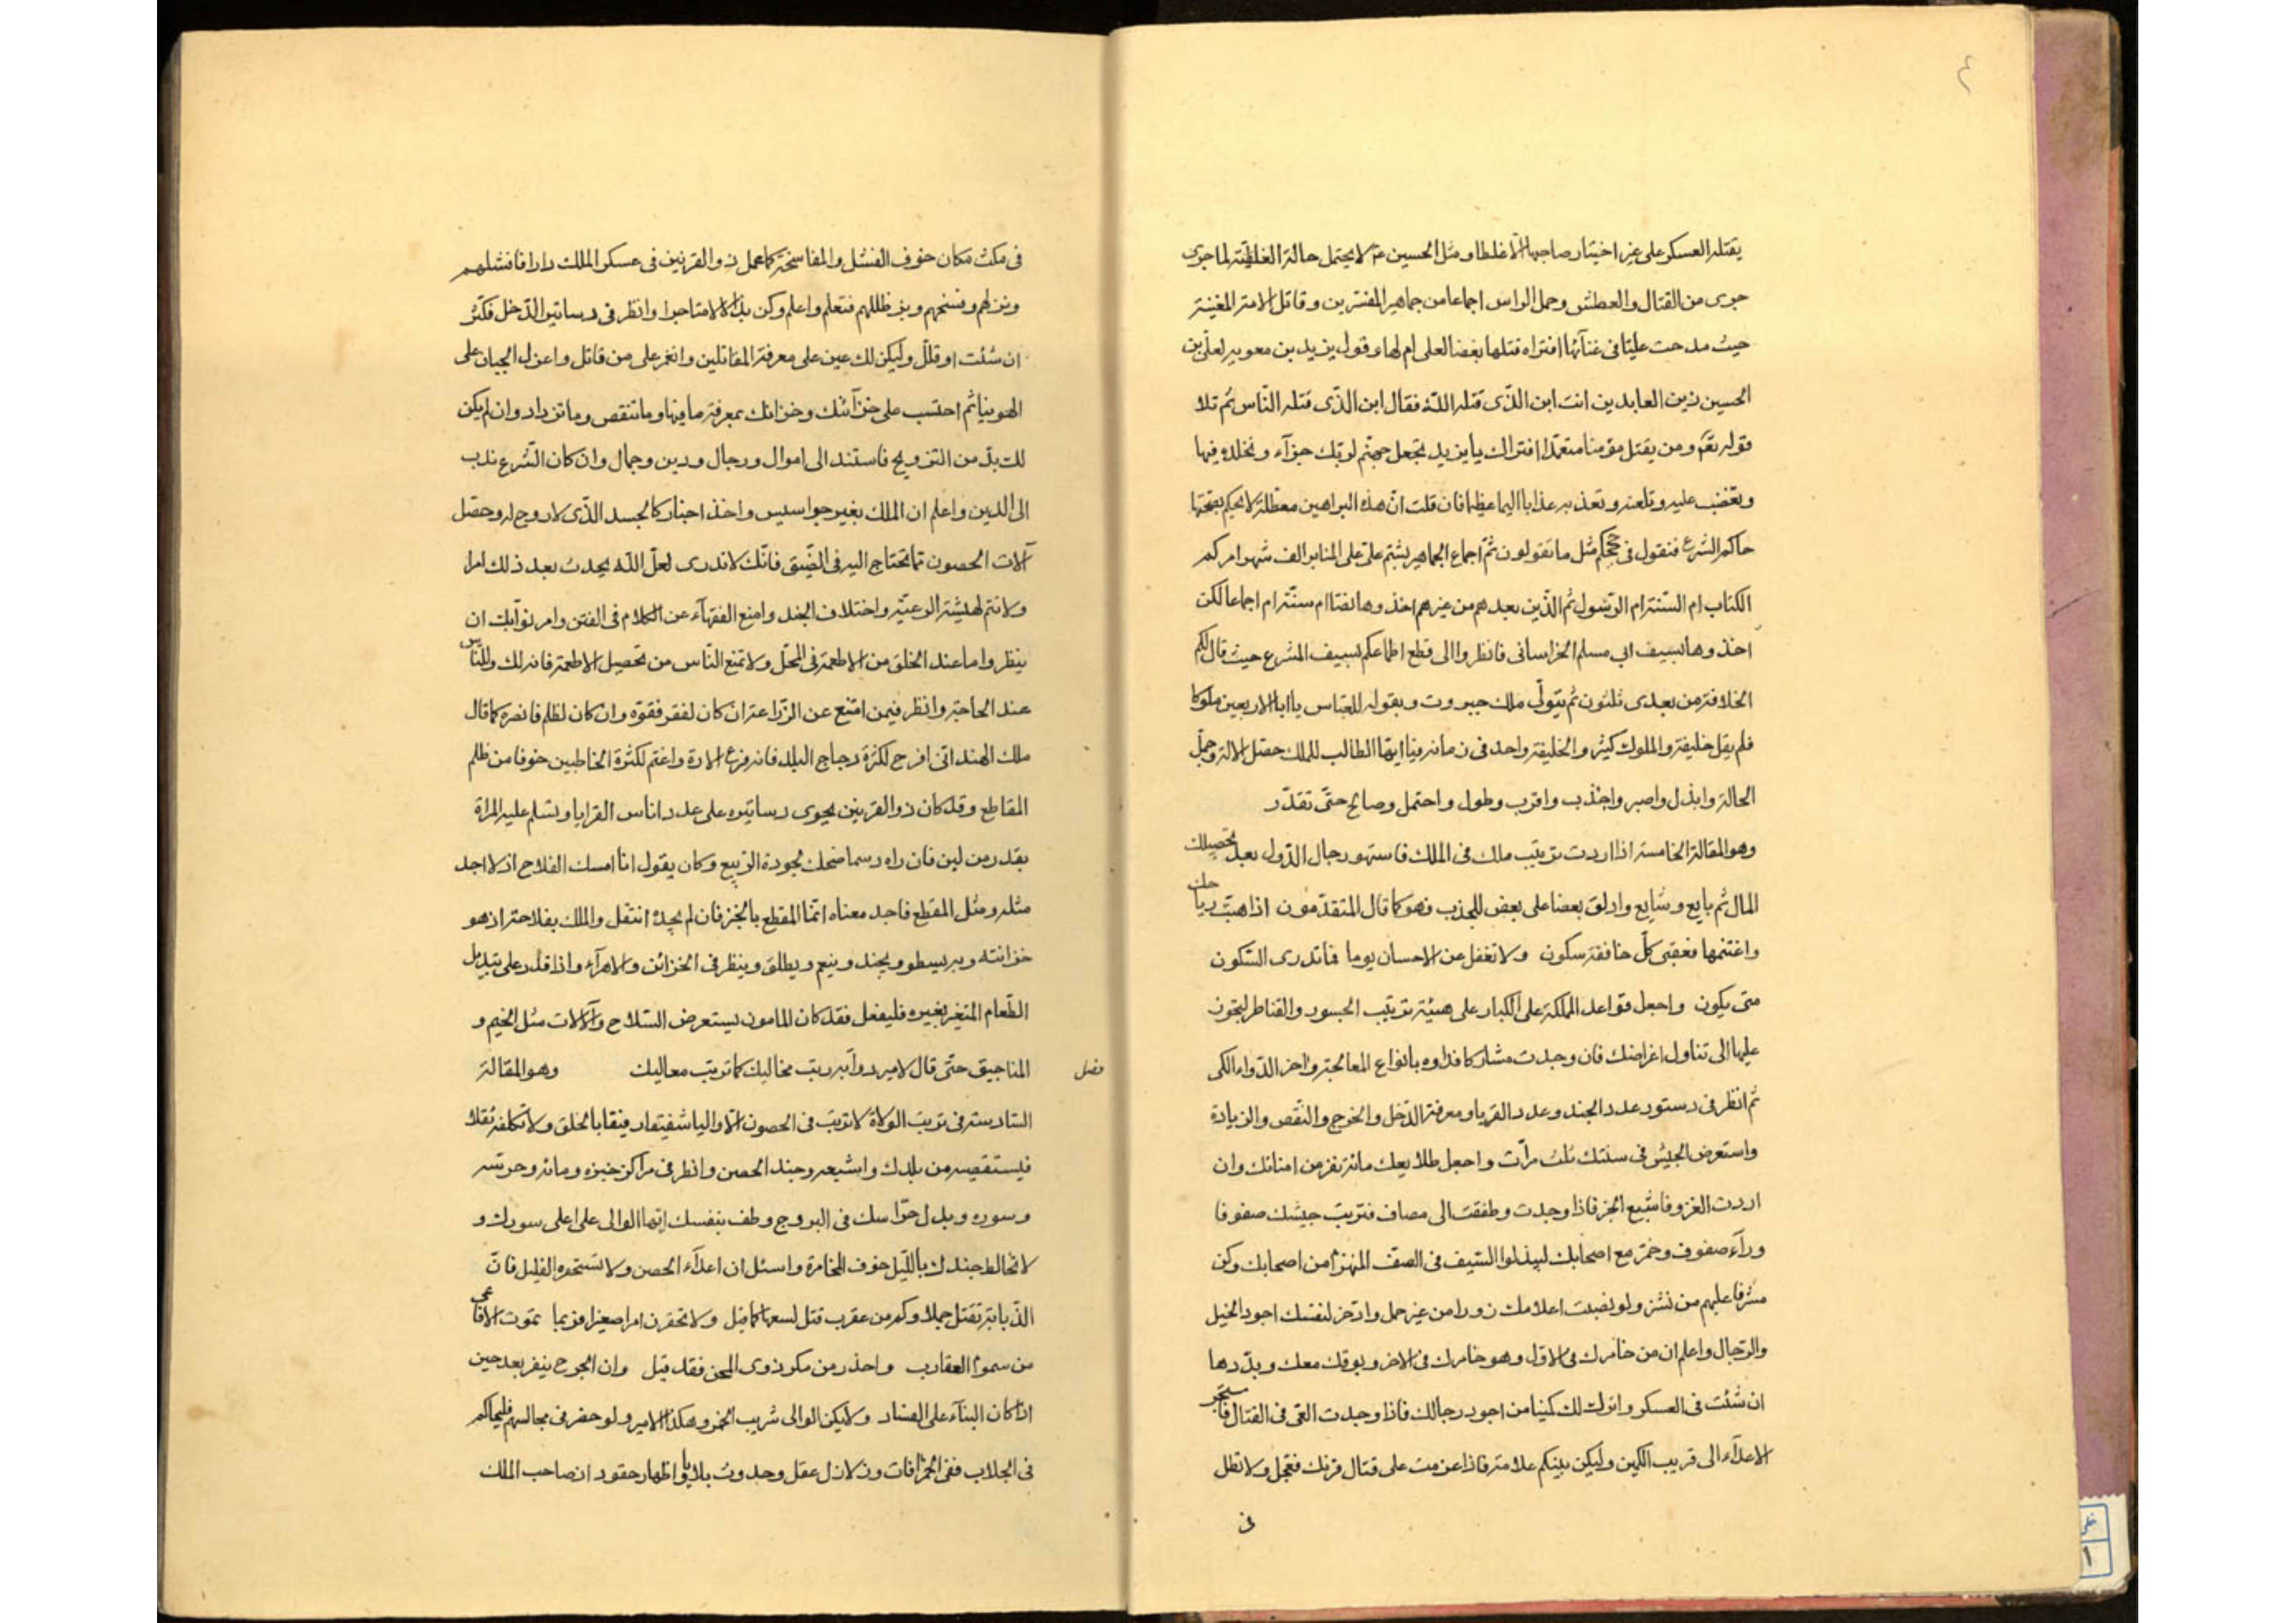 ٤
يقتله العسكر على غير اختيار صاحبها الّا غلطا ومثل الحسين ع م لا يحتمل حالة الغلط لما جرى
جرى من القتال والعطش وحمل الراس اجماعا من جماهير المفسرين وقاتل الامة المغنية
حيث مدحت عليّا فى غنآئها افتراه قتلها بغضا لعلى ام لها وقول يزيد بن معويه لعلّى بن
الحسين زين العابدين انت ابن الذّى قتله اللّه فقال ابن الذّى قتله النّاس ثم تلا
قوله تع ومن يقتل مؤمنا متعمّدا افتراك يا يزيد تجعل جهنّم لربّك جزآء وتخلده فيها
وتغضب عليه وتلعنه وتعذبه عذابا اليما عظيما فان قلت انّ هذه البراهين معطلة لا يحكم بصحتها
حاكم الشرع فنقول فى حججكم مثل ما تقولون ثمّ اجماع الجماهير بشتم علىّ على المنابر الف شهر امركم
الكتاب ام السّنة ام الرّسول ثم الّذين بعدهم من غيرهم اخذوها نصّا ام سنّة ام اجماعا لكن
اخذوها بسيف ابى مسلم الخراسانى فانظروا الى قطع اطماعكم بسيف الشرع حيث قال لكم
الخلافة من بعدى ثلثون ثم يتولّى ملك جبروت وبقوله للعبّاس يا ابا الاربعين ملوكا
فلم يقل خليفة والملوك كثير والخليفة واحد فى زمانه فيا ايّها الطالب للملك حصّل الالة وجمّل
الحالة وابذل واصبر واجذب واقرب وطول واحتمل وصالح حتّى تقدّر
وهو المقالة الخامسة اذا اردت ترتيب ملك فى الملك فاستهو رجال الدّول بعد تحصيلك
المال ثم بايع وشايع وادلق بعضا على بعض للجذب فهو كما قال المتقدّمون اذا هبّت رياحك
واغتنمها فعقبى كلّ خافقة سكون ولا تغفل عن الاحسان يوما فما تدرى السّكون
متى يكون واجعل قواعد المملكة على الكبار على هيئة ترتيب الجسور والقناطر ليجوزن
عليها الى تناول اغراضك فان وجدت مشاركا فداوه بانواع المعالجة واخر الدّواء الكى
ثم انظر فى دستور عدد الجند وعدد القريا ومعرفة الدّخل والخرج والنّقص والزيادة
واستعرض الجيش فى سنتك ثلث مرّات واجعل طلايعك مائة نفر من امنائك وان
اردت الغزو فاشبع الخبز فاذا وجدت وطفقت الى مصاف فترتيب جيشك صفوفا
ورآء صفوف وخمّر مع اصحابك ليبذلوا السّيف فى الصّف المنهزم من اصحابك وكن
مشرفا عليهم من نشز ولو نصبت اعلامك زورا من غير حمل وادّخر لنفسك اجود الخيل
والرّجال واعلم ان من خامرك فى الاوّل وهو خامرك فى الاخر وبوقك معك وبدّدها
ان شئت فى العسكر واترك لك كمينا من اجود رجالك فاذا وجدت العىّ فى القتال فاستجر
الاعدآء الى قريب الكمين وليكن بينكم علامة فاذا عزمت على قتال قرنك فعجّل ولا تطل
فى
فى مكث مكان خوف الفشل والمفاسخة كما عمل ذو القرنين فى عسكر الملك دارا فافشلهم
ونزلهم وفسخهم وبرظلهم فتعلم واعلم وكن بذّالا لامتاجرا وانظر فى دساتير الدّخل فكثّر
ان شئت او قلّل وليكن لك عين على معرفة المقاتلين وانغر على من قاتل واعزل الجبان على
الهوينا ثم احتسب على خزآئنك وخزانك بمعرفة ما فيها وما تنقص وما تزداد وان لم يكن
لك بدّ من التزويج فاستند الى اموال ورجال ودين وجمال وان كان الشّرع ندب
الى الدّين واعلم ان الملك بغير جواسيس واخذ اخبار كالجسد الذّى لا روح له وحصّل
آلات الحصون ممّا تحتاج اليه فى الضّيق فانّك لا تدرى لعلّ اللّه يحدث بعد ذلك امرا
ولا تنم لهيشة الرعيّة واختلاف الجند وامنع الفقهآء عن الكلام فى الفتن وامر نوّابك ان
ينظروا ما عند الخلق من الاطعمة فى المحل ولا تمنع النّاس من تحصيل الاطعمة فانه لك وللنّاس
عند الحاجة وانظر فيمن امتنع عن الزّراعة ان كان لفقر فقوّه وان كان لظلم فانصره كما قال
ملك الهند انّى افرح لكثرة دجاج البلد فانه فرع الادة واغتم لكثرة الخاطبين خوفا من ظلم
المقاطع وقد كان ذو القرنين يحوى دساتيره على عدد اناس القرايا وتسلم عليه المراة
بقدر من لبن فان راه دسما ضحك لجودة الرّبيع وكان يقول انا امسك الفلاح اذ لا اجد
مثله ومثل المقطع فاجد معناه انّما المقطع بالخبز فان لم يجده انتقل والملك بفلاحة اذ هو
خزانته وبه يسطو ويجند وينعم ويطلق وينظر فى الخزائن والامرآء واذا قدر على تبديل
الطّعام المتغير بغيره فليفعل فقد كان المامون يستعرض السّلاح والآلات مثل الخيم و
المناجيق حتّى قال لامير دوابه رتب مخاليك كما ترتب معاليك وهو المقالة
فصل
السّادسة فى ترتيب الولاة لا ترتب فى الحصون الّا واليا شفيقا رفيقا بالخلق ولا تكلفه ثقلا
فيستقصيه من بلدك واشبعه وجند الحصن وانظر فى مراكز خبزه ومائه وحرسه
وسوره وبدل حرّاسك فى البروج وطف بنفسك ايّها الوالى على اعلى سورك و
لا تخالط جندك بالّليل خوف المخامرة واسئل ان اعدآء الحصن ولا تستحقره القليل فانّ
الذّبابة تقتل جملا وكم من عقرب قتل لسعها كما قيل ولا تحقرن امرا صغيرا فربما تموت الافاعى
من سموم العقارب واحذر من مكر ذوى المحن فقد قيل وان الجرح ينفر بعد حين
اذا كان البنآء على الفساد ولا يكن الوالى شريب الخمر وهكذا الامير ولو حضر فى مجالسهم فليحاكم
فى الجلاب ففى الخمر افات وزلازل عقل وحدوث بلايا واظهار حقود ان صاحب الملك